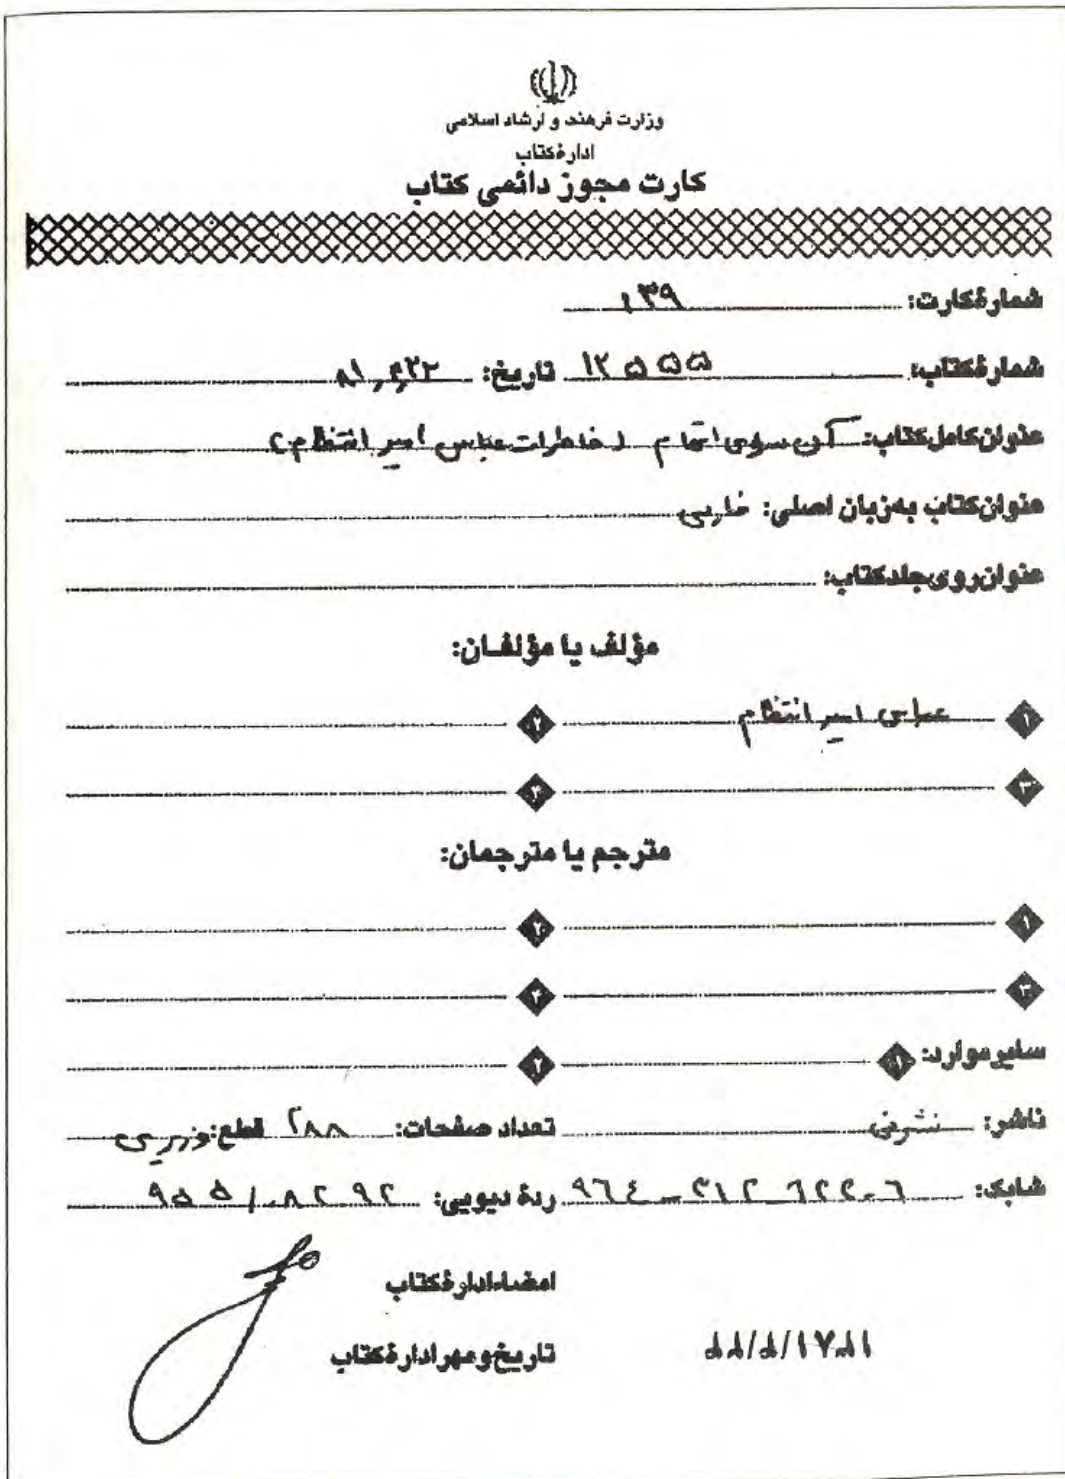 وزارت فرهنگ و ارشاد اسلامی
ادارهٔ کتاب
کارت مجوز دائمی کتاب
شمارهٔ کارت: ۱۳۹
شمارهٔ کتاب: ۱۲۵۵۵ تاریخ:
عنوان کامل کتاب: آن سوی اتهام (خاطرات عباس امیر انتظام)
عنوان کتاب به زبان اصلی: فارسی
عنوان روی جلد کتاب:
مؤلف یا مؤلفان:
۱ عباس امیر انتظام ۲
۳ ۴
مترجم یا مترجمان:
۱ ۲
۳ ۴
سایر موارد: ۱ ۲
ناشر: نشر نی تعداد صفحات: ۲۸۸ قطع: وزیری
شابک: ۹۶۴-۳۱۲-۶۲۲-۶ ردهٔ دیویی: ۹۵۵/۰۸۲۰۹۲
امضاء ادارهٔ کتاب
تاریخ و مهر ادارهٔ کتاب